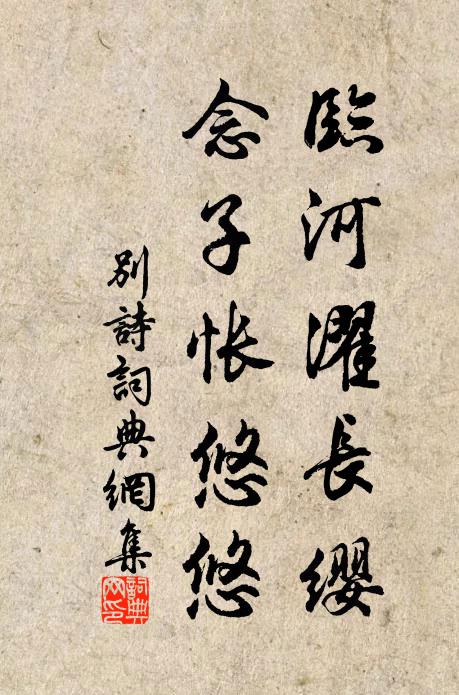 臨河濯長纓
念子悵悠悠
別詩詞典網集
詞典网印